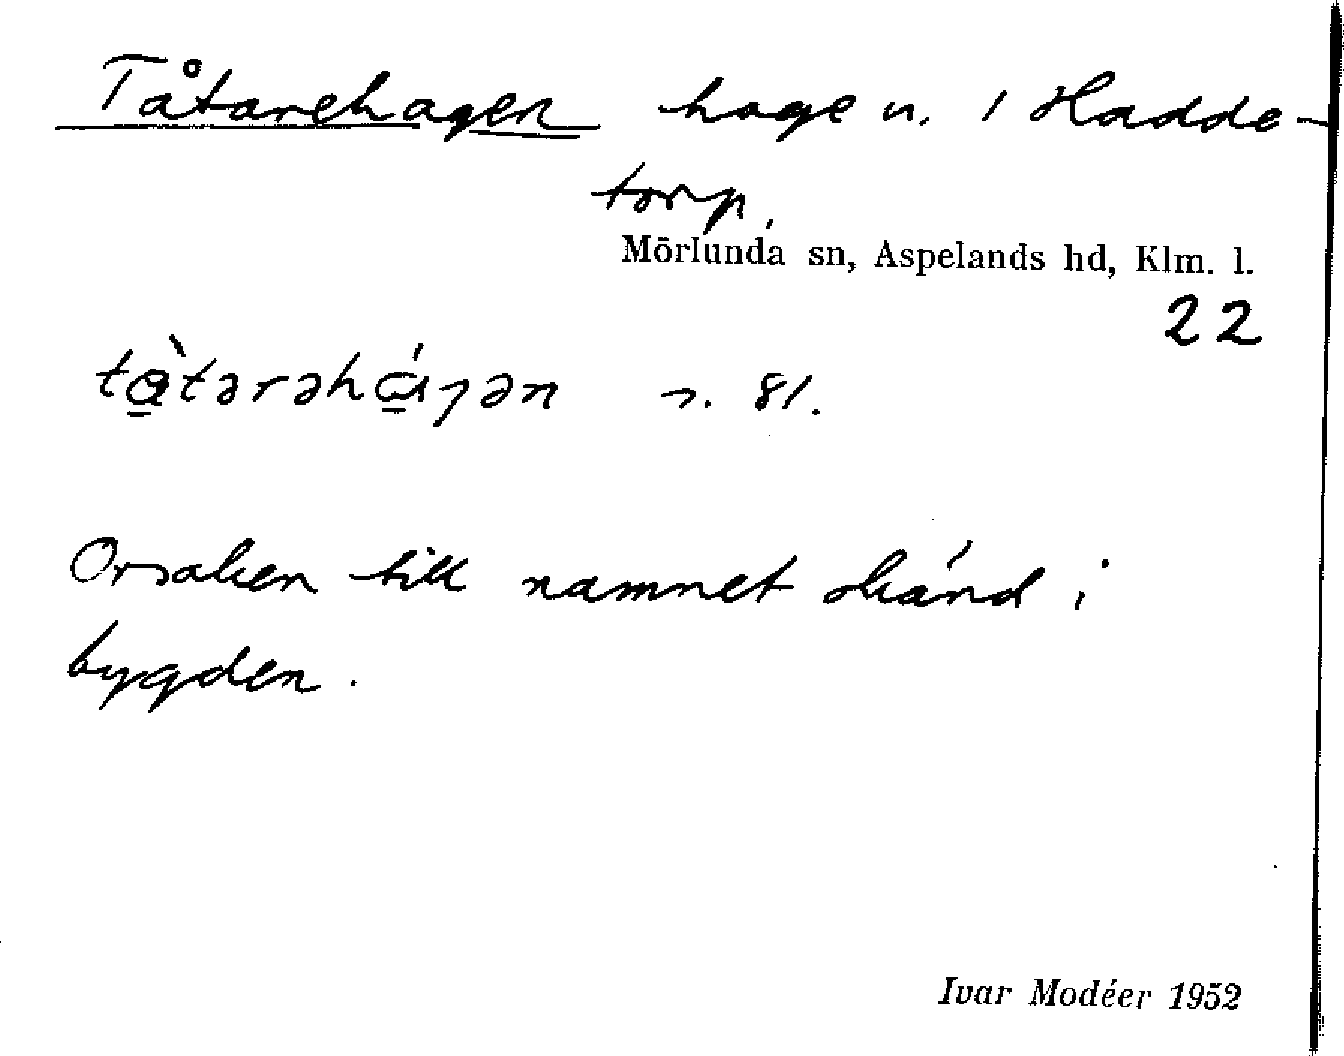 Tåtarehagen hage n. 1 Hadde-
torp,
Mörlunda sn, Aspelands hd, Klm. l.
22
tὰtərəhάγən s. 81.
Orsaken till namnet okänd i
bygden.
Ivar Modéer 1952